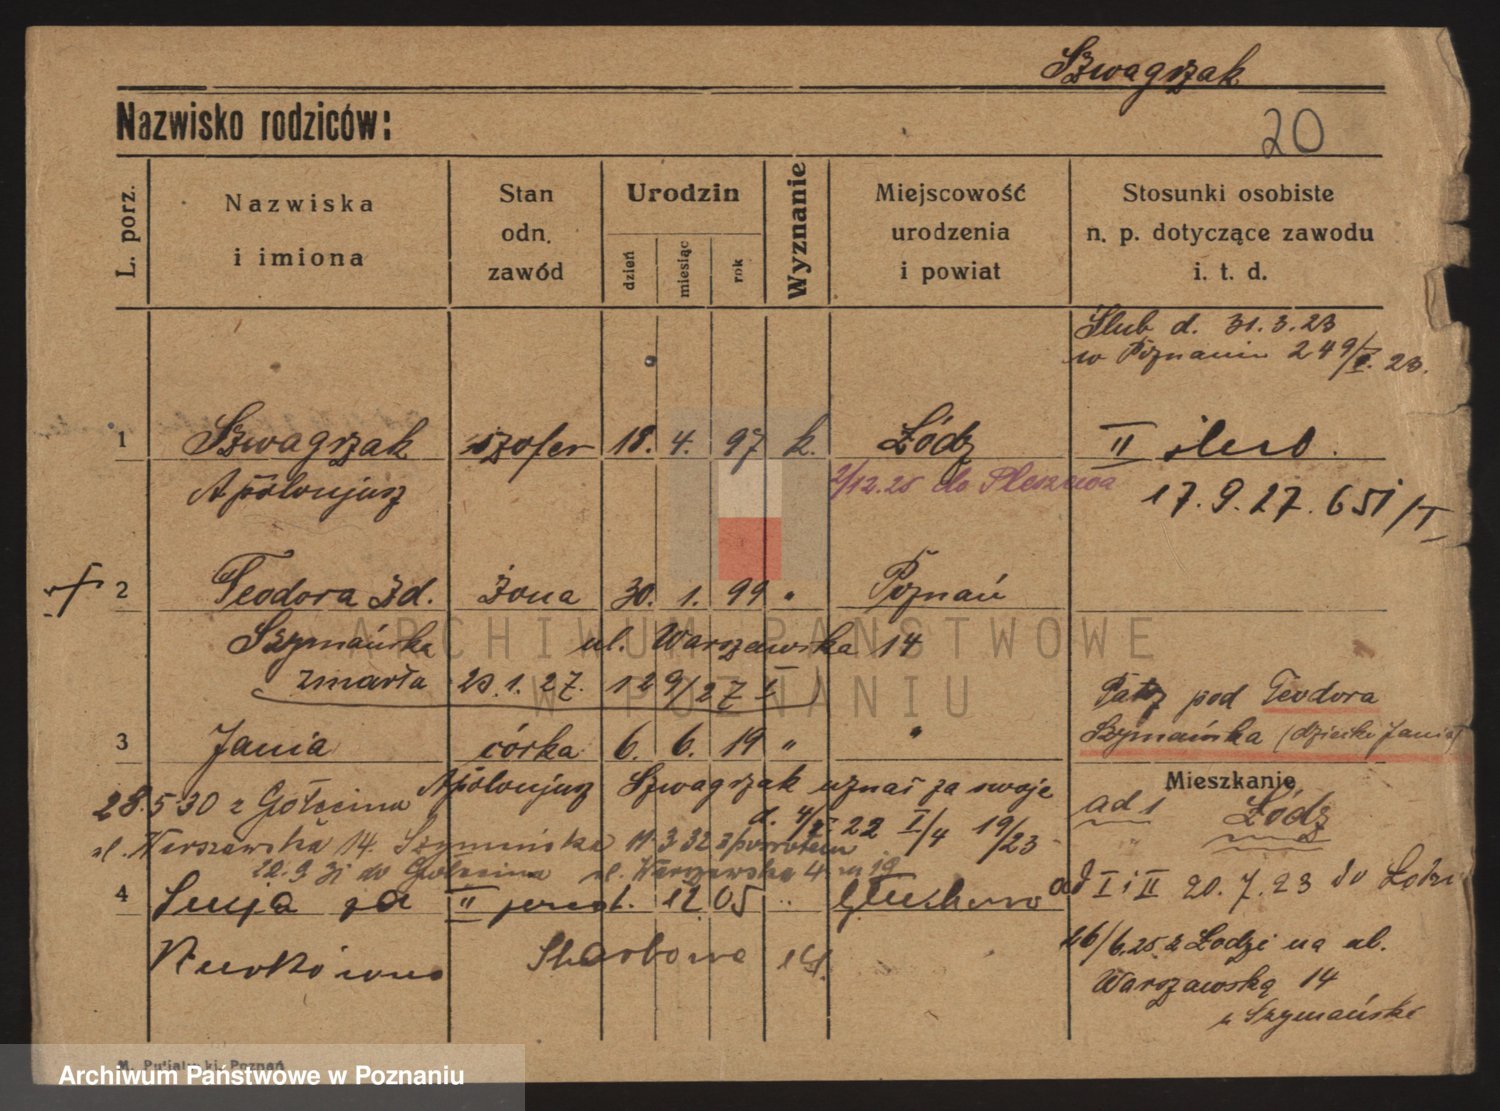 Szwagrzak
Nazwisko rodziców:
20
L. porz.
Nazwiska
i imiona
Stan
odn.
zawód
Urodzin
dzień
miesiąc
rok
Wyznanie
Miejscowość
urodzenia
i powiat
Stosunki osobiste
n. p. dotyczące zawodu
i. t. d.
Ślub d. 31.3.23
w Poznaniu 249/ 23.
1 Szwagrzak szofer 18. 4. 97 k. Łódz II ślub.
Apolonjusz
2/12.25 do Pleszewa
17.9.27. 651/I
2 Teodora zd. żona 30. 1. 99 " Poznań
Szymańska ul. Warszawska 14
zmarła 23.1.27. 129/27 I
Patrz pod Teodora
Szymańska (dziecko Jania)
3 Jania córka 6. 6. 19 " "
Apolonjusz Szwagrzak uznał za swoje
d. 22 I/4 19/23
Mieszkanie
ad 1 Łódz
28.5 30 z Golęcina
ul. Warszawska 14. Szymańska 11.3 32 z powrotem
22.9 31 do Golęcina ul. Warszawska 4 m 19
ad I i II 20.7.23 do Łodzi
4 Łucja zd II 12 05 "
Skarbowa 14.
16/6.25 z Łodzi na ul.
Warszawską 14
u Szymańska
Poznań
ARCHIWUM PAŃSTWOWE
W POZNANIU
Archiwum Państwowe w Poznaniu